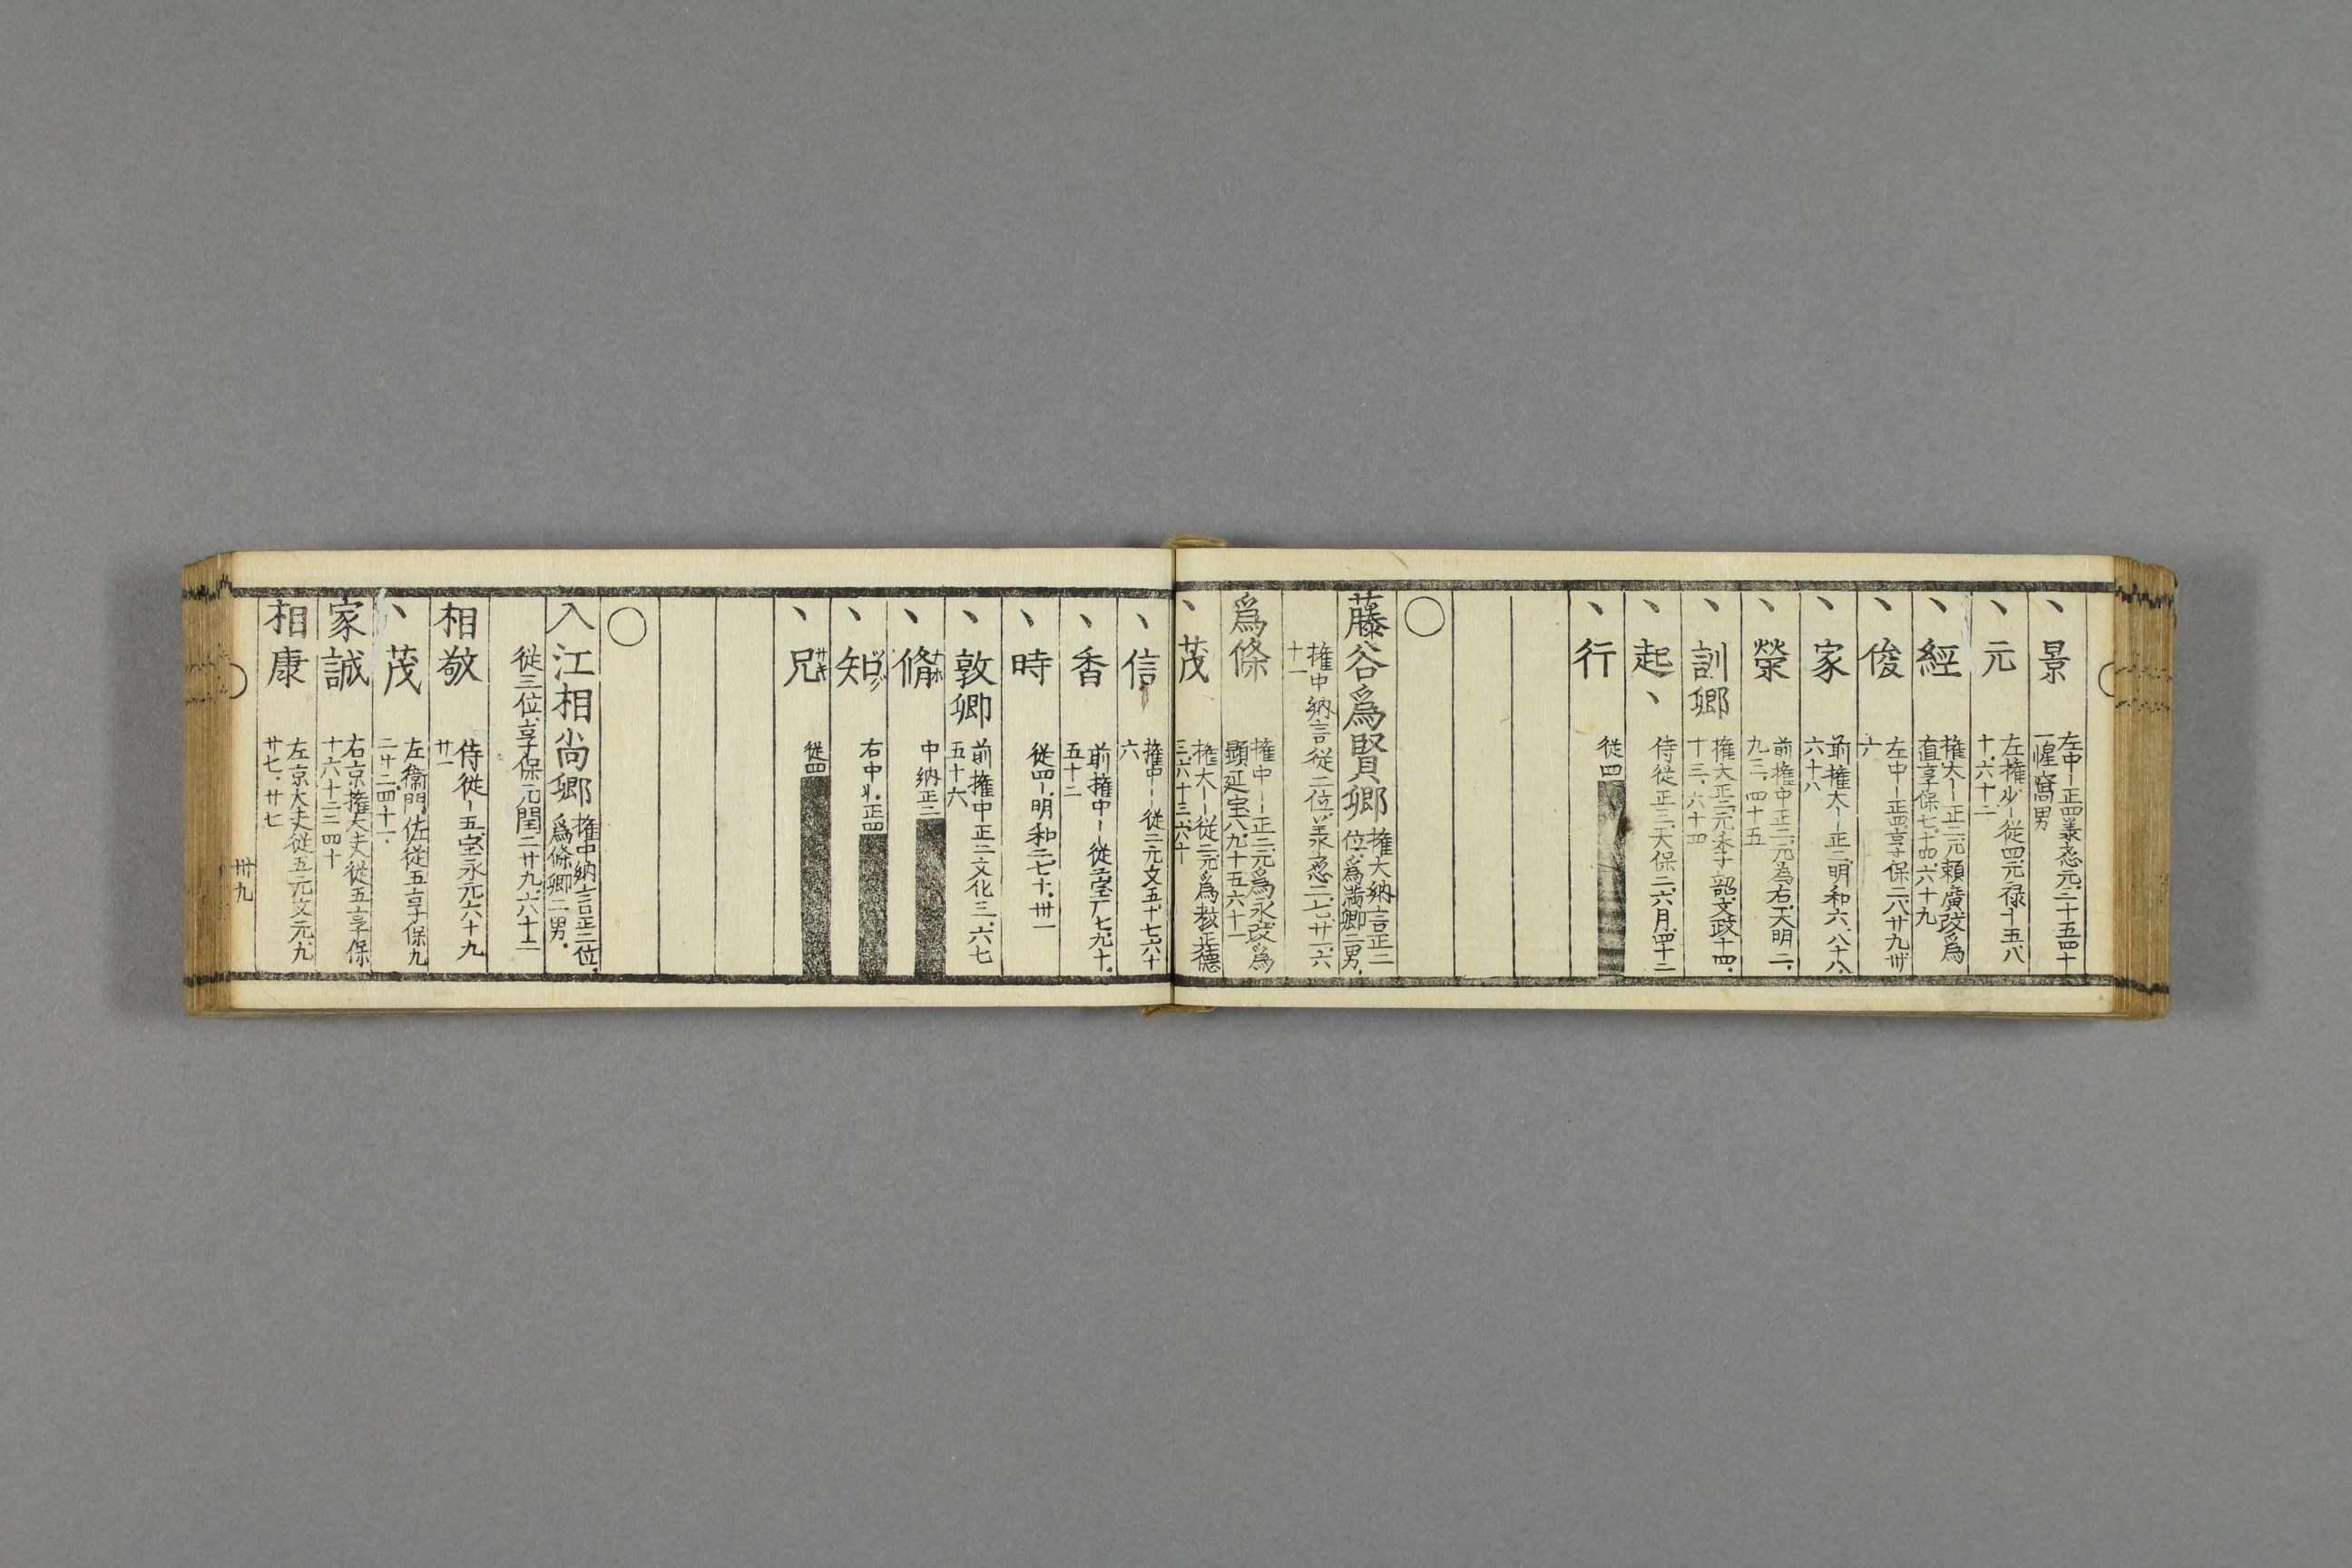 丶景 左中｜正四義忩元三十五四十
一惺窩男
丶元 左権少｜従四元禄十五八
十六十二
丶經 権大｜正二元頼廣改爲
直享保七十四六十九
丶俊 左中｜正四享保二八廿九卅
六
丶家 前権大｜正二明和六八十八
六十八
丶榮 前権中正二元為右天明二
九三四十五
丶訓卿 権大正二元季子韶文政十四
十三六十四
丶起丶 侍従正三天保二六月四十二
丶行 従四
○
藤谷爲賢卿 権大納言正二
位爲満卿二男
権中納言従二位義忩二七廿一六
十一
爲條 権中｜正二元爲永改爲
顕延宝八九十五六十一
丶茂 権大｜従二元爲教正徳
三六十三六十
丶信 権中｜従二元文五十七六十
六
丶香 前権中｜従二宝丁七九十
五十二
丶時 従四明和二七十卅一
丶敦卿 前権中正二文化三六七
五十六
丶脩 中納正三
丶知 右中小正四
丶兄 サキ 従四
○
入江相尚卿 権中納言正二位
爲條卿二男
従三位享保元閏二廿九六十二
相敬 侍従｜五宝永元六十九
廿一
丶茂 左衞門佐従五享保九
二廿二四十一
家誠 右京権大夫従五享保
十六十二二四十
相康 左京大夫従五元文元九
廿七廿七
卅九